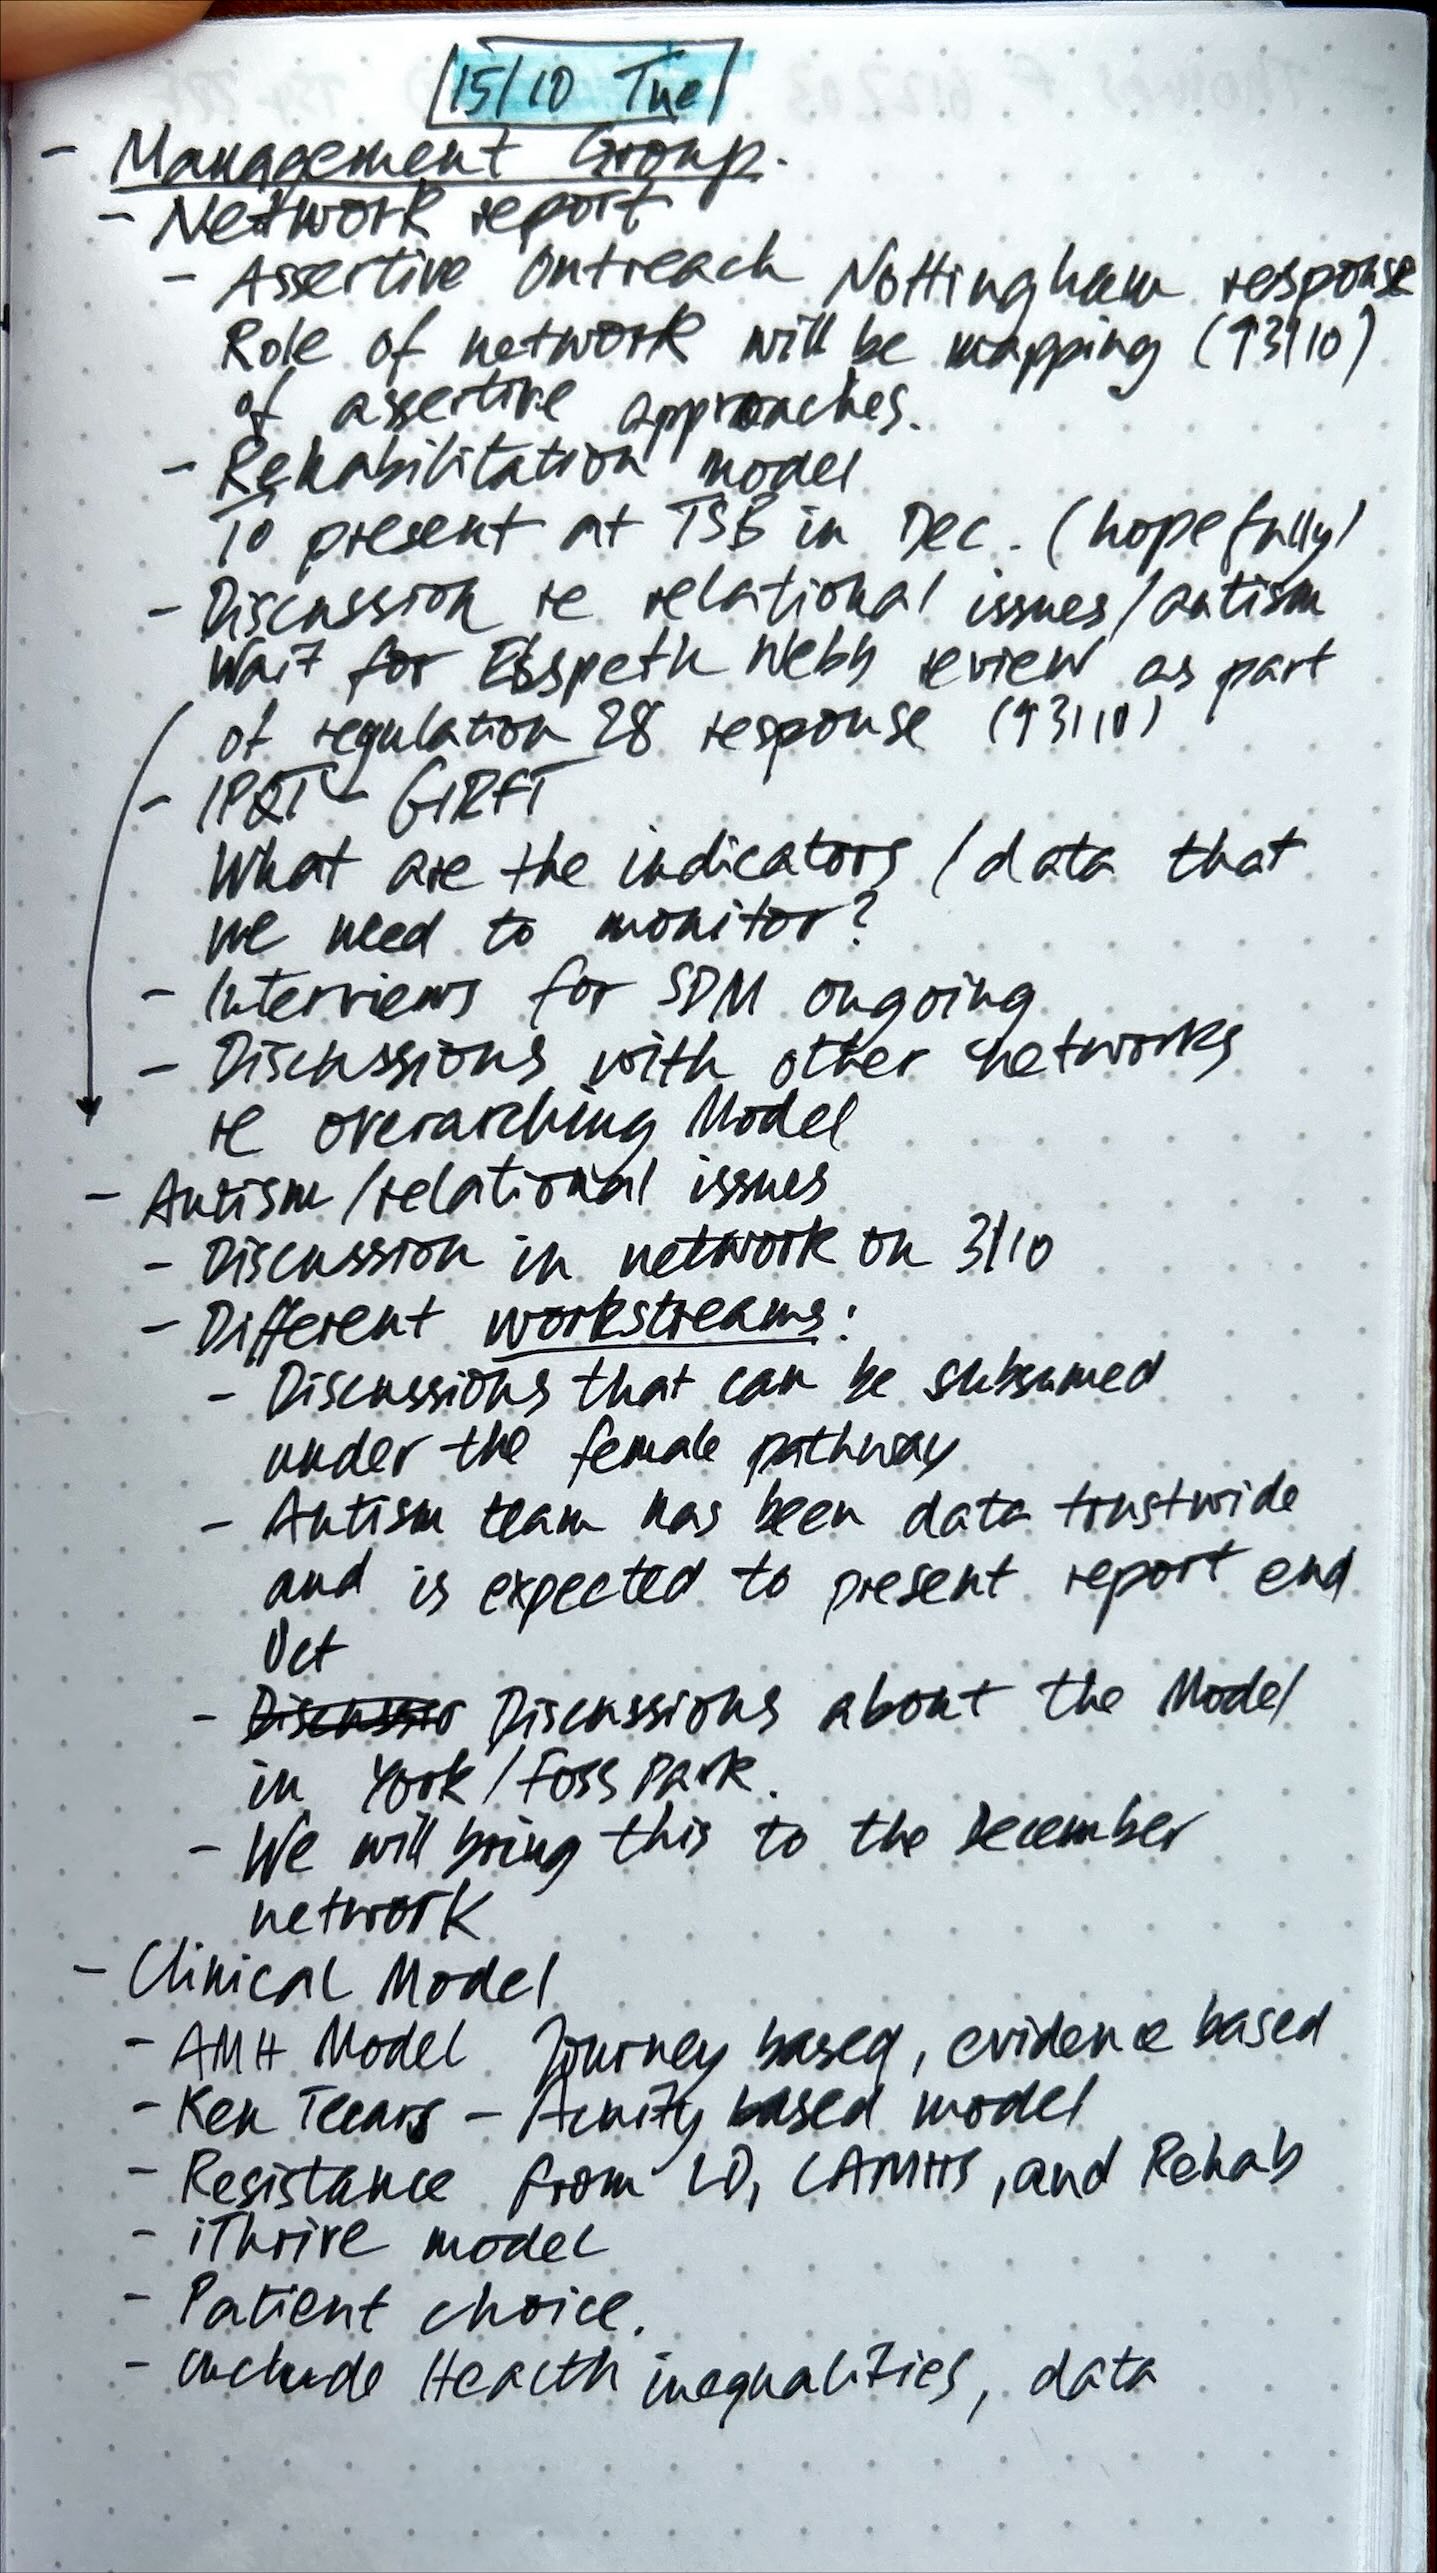 15/10 Tue
- Management Group.
- Network report
- Assertive Outreach Nottingham response
Role of network will be mapping (↑3/10)
of assertive approaches.
- Rehabilitation model
To present at TSB in Dec. (hopefully)
- Discussion re relational issues/autism
Wait for Elspeth Webb review as part
of regulation 28 response (↑3/10)
- IPQT - GIRFT
What are the indicators / data that
we need to monitor?
- Interviews for SDM ongoing
- Discussions with other networks
re overarching Model
- Autism/relational issues
- Discussion in network on 3/10
- Different workstreams:
- Discussions that can be subsumed
under the female pathway
- Autism team has been data trustwide
and is expected to present report end
Oct
- Discussions about the Model
in York/Foss Park.
- We will bring this to the December
network
- Clinical Model
- AMH Model Journey based, evidence based
- Ken - Acuity based model
- Resistance from LD, CAMHS, and Rehab
- iThrive model
- Patient choice.
- include Health inequalities, data